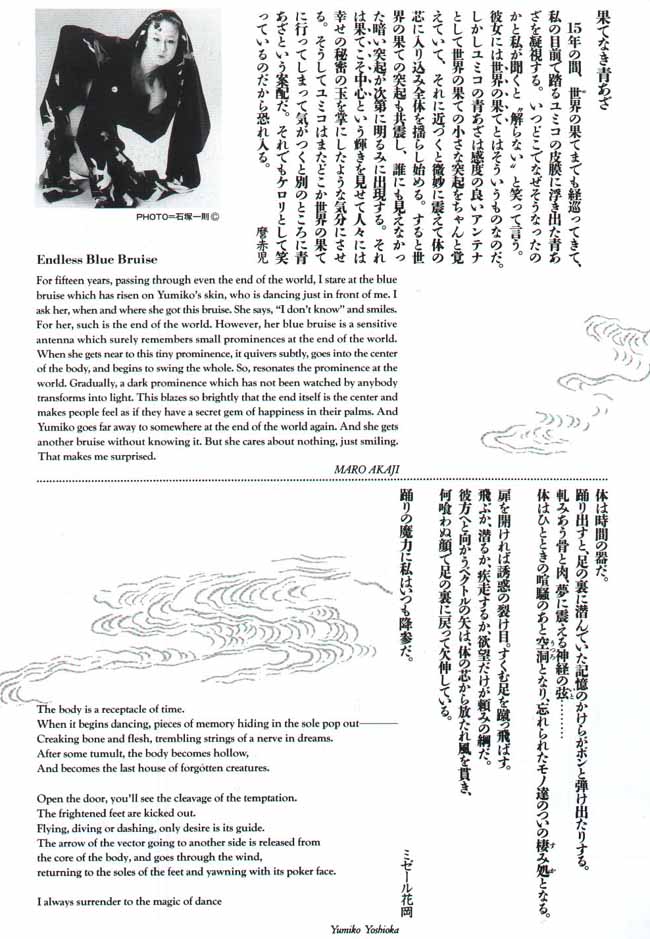 果てなき青あざ
15年の間、世界の果てまでも経巡ってきて、
私の目前で踊るユミコの皮膜に浮き出た青あ
ざを凝視する。いつどこでなぜそうなったの
かと私が聞くと〝解らない〟と笑って言う。
彼女には世界の果てとはそういうものなのだ。
しかしユミコの青あざは感度の良いアンテナ
として世界の果ての小さな突起をちゃんと覚
えていて、それに近づくと微妙に震えて体の
芯に入り込み全体を揺らし始める。すると世
界の果ての突起も共震し、誰にも見えなかっ
た暗い突起が次第に明るみに出現する。それ
は果てこそ中心という輝きを見せて人々には
幸せの秘密の玉を掌にしたような気分にさせ
る。そうしてユミコはまたどこか世界の果て
に行ってしまって気がつくと別のところに青
あざという案配だ。それでもケロリとして笑
っているのだから恐れ入る。
麿赤児
PHOTO=石塚一則©
Endless Blue Bruise
For fifteen years, passing through even the end of the world, I stare at the blue
bruise which has risen on Yumiko's skin, who is dancing just in front of me. I
ask her, when and where she got this bruise. She says, "I don't know" and smiles.
For her, such is the end of the world. However, her blue bruise is a sensitive
antenna which surely remembers small prominences at the end of the world.
When she gets near to this tiny prominence, it quivers subtly, goes into the center
of the body, and begins to swing the whole. So, resonates the prominence at the
world. Gradually, a dark prominence which has not been watched by anybody
transforms into light. This blazes so brightly that the end itself is the center and
makes people feel as if they have a secret gem of happiness in their palms. And
Yumiko goes far away to somewhere at the end of the world again. And she gets
another bruise without knowing it. But she cares about nothing, just smiling.
That makes me surprised.
MARO AKAJI
体は時間の器だ。
踊り出すと、足の裏に潜んでいた記憶のかけらがポンと弾け出たりする。
軋みあう骨と肉、夢に震える神経の弦………
体はひとときの喧騒のあと空洞となり、忘れられたモノ達のついの棲み処となる。
扉を開ければ誘惑の裂け目。すくむ足を蹴っ飛ばす。
飛ぶか、潜るか、疾走するか、欲望だけが頼みの綱だ。
彼方へと向かうベクトルの矢は、体の芯から放たれ風を貫き、
何喰わぬ顔で足の裏に戻って欠伸している。
踊りの魔力に私はいつも降参だ。
ミゼール花岡
The body is a receptacle of time.
When it begins dancing, pieces of memory hiding in the sole pop out———
Creaking bone and flesh, trembling strings of a nerve in dreams.
After some tumult, the body becomes hollow,
And becomes the last house of forgotten creatures.
Open the door, you'll see the cleavage of the temptation.
The frightened feet are kicked out.
Flying, diving or dashing, only desire is its guide.
The arrow of the vector going to another side is released from
the core of the body, and goes through the wind,
returning to the soles of the feet and yawning with its poker face.
I always surrender to the magic of dance
Yumiko Yoshioka